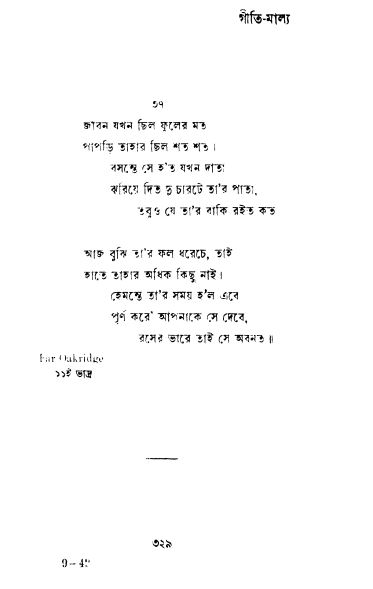 গীতি-মাল্য
৩৭
জীবন যখন ছিল ফুলের মত
পাপড়ি তাহার ছিল শত শত।
বসন্তে সে হ'ত যখন দাতা
ঝরিয়ে দিত দু চারটে তা'র পাতা,
তবুও যে তা'র বাকি রইত কত
আজ বুঝি তা'র ফল ধরেচে, তাই
হাতে তাহার অধিক কিছু নাই।
হেমন্তে তা'র সময় হ'ল এবে
পূর্ণ করে' আপনাকে সে দেবে,
রসের ভারে তাই সে অবনত॥
Far Oakridge
১১ই ভাদ্র
৩২৯
9-42